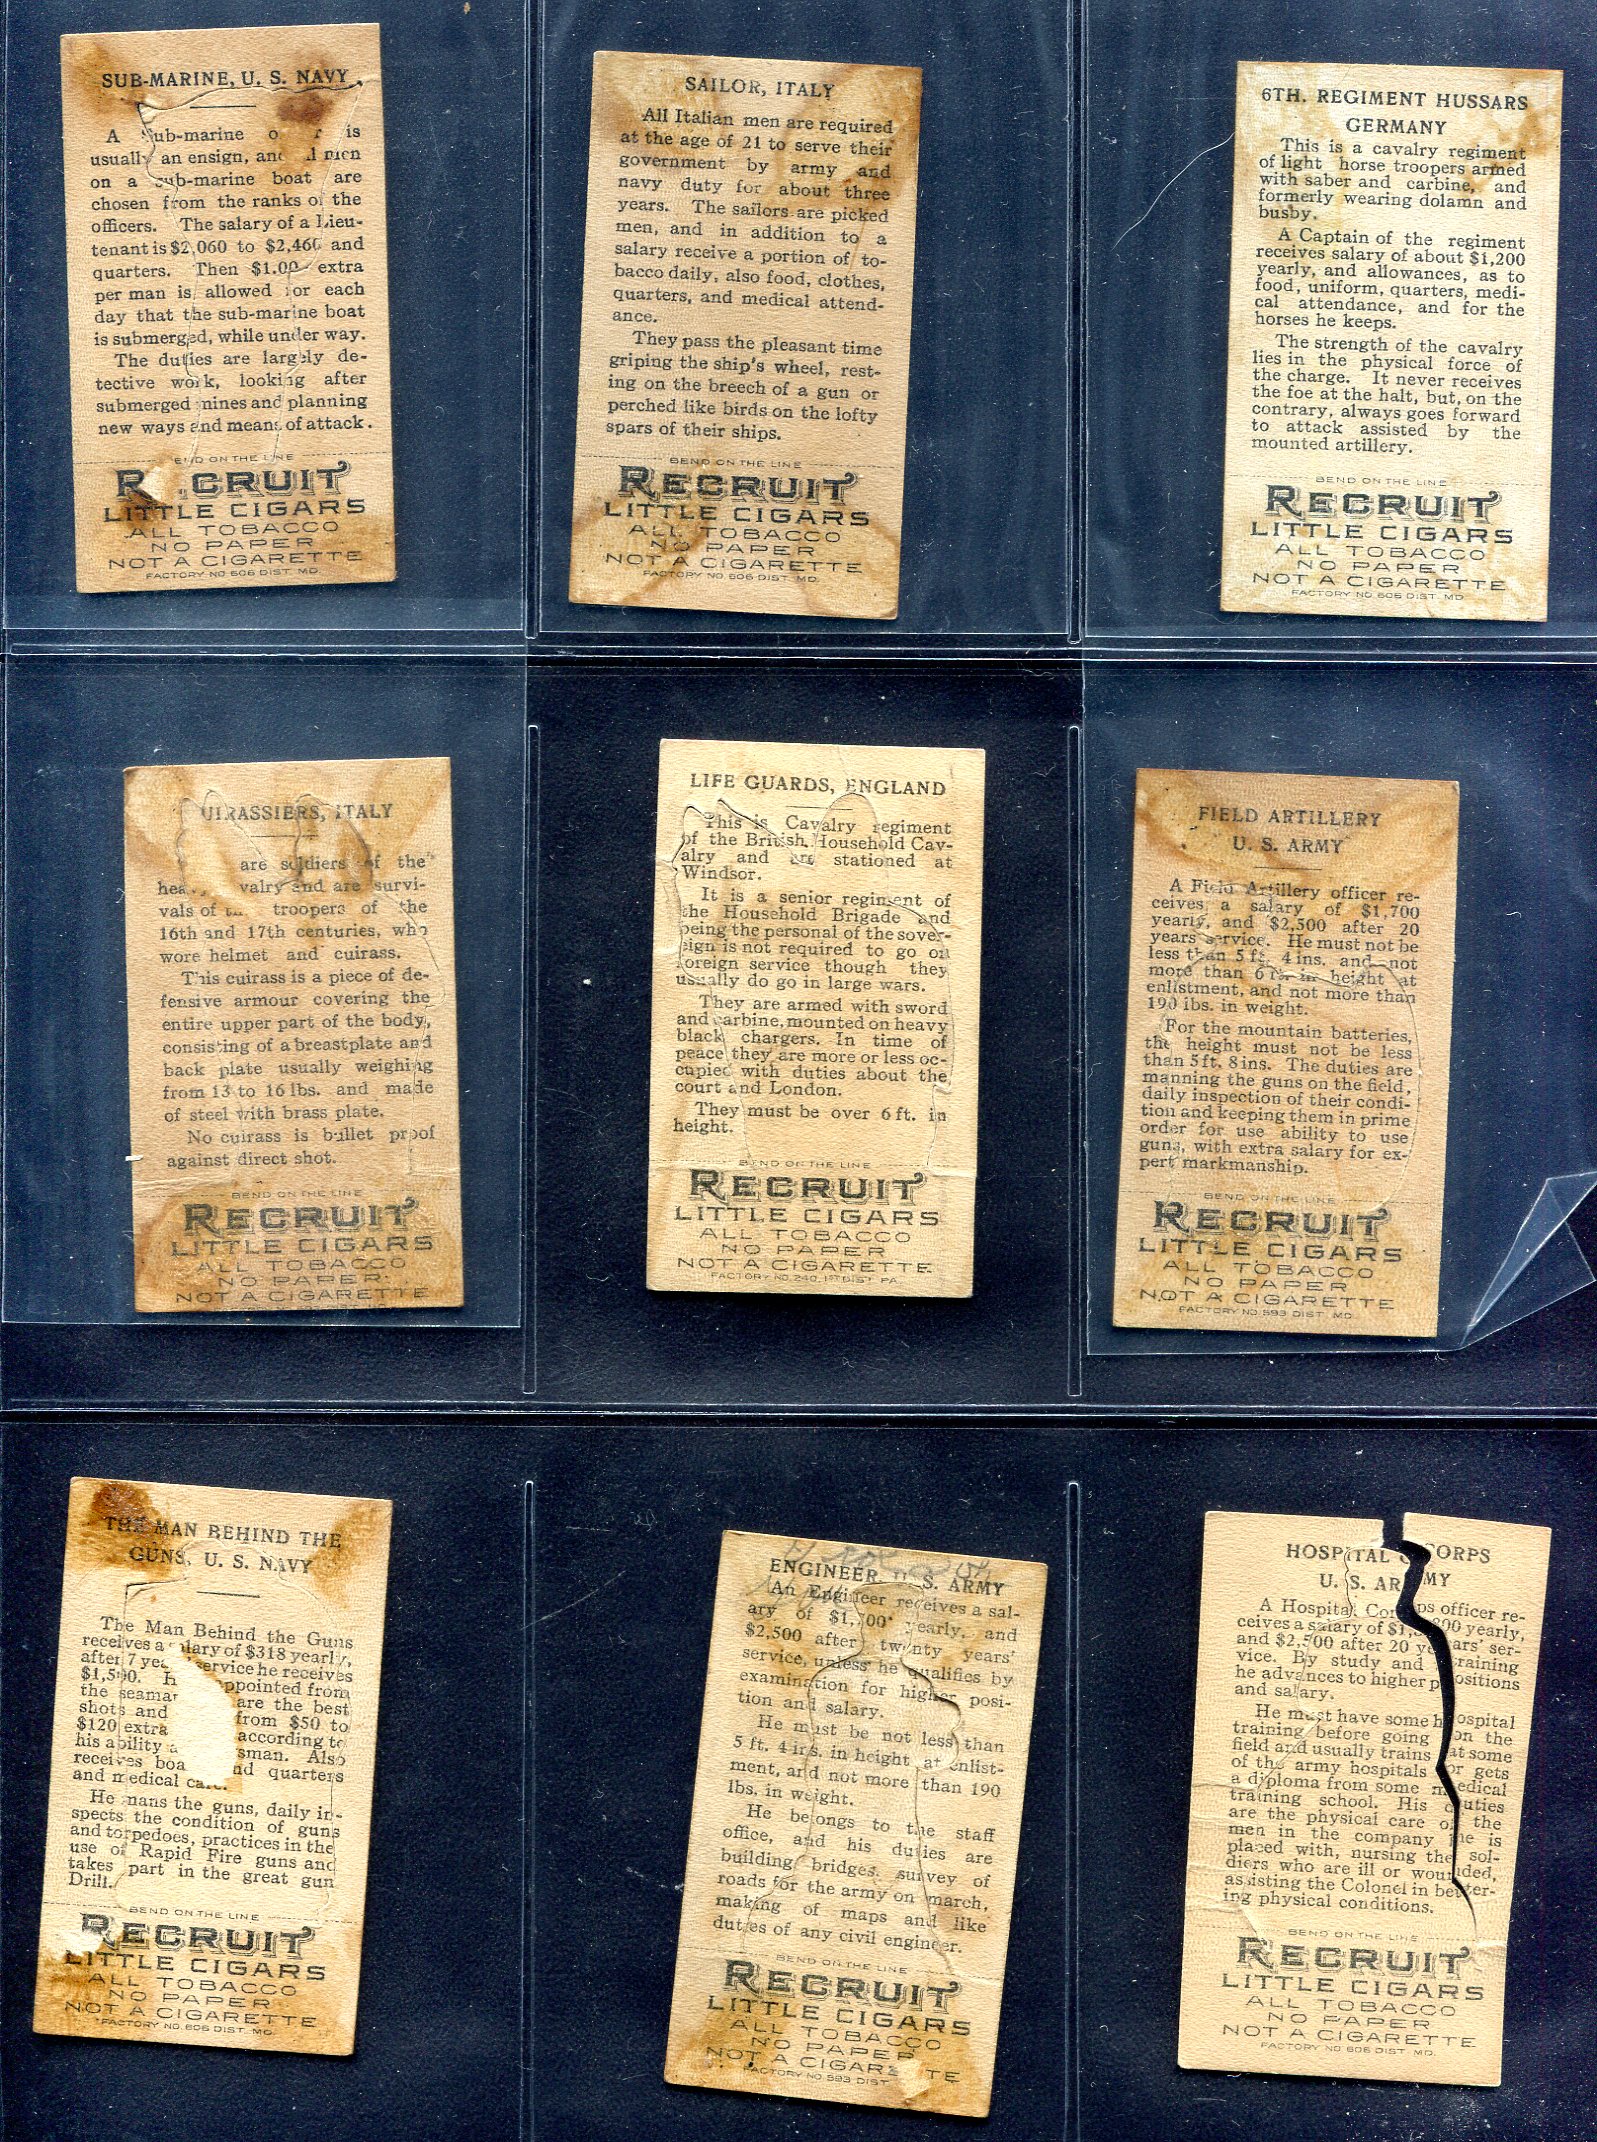 SUB-MARINE, U. S. NAVY
A Sub-marine is
usually an ensign, and men
on a sub-marine boat are
chosen from the ranks of the
officers. The salary of a Lieu-
tenant is $2,060 to $2,460 and
quarters. Then $1.00 extra
per man is allowed for each
day that the sub-marine boat
is submerged, while under way.
The duties are largely de-
tective work, looking after
submerged mines and planning
new ways and means of attack.
BEND ON THE LINE
RECRUIT
LITTLE CIGARS
ALL TOBACCO
NO PAPER
NOT A CIGARETTE
FACTORY NO 606 DIST. MD.
SAILOR, ITALY
All Italian men are required
at the age of 21 to serve their
government by army and
navy duty for about three
years. The sailors are picked
men, and in addition to a
salary receive a portion of to-
bacco daily, also food, clothes,
quarters, and medical attend-
ance.
They pass the pleasant time
griping the ship's wheel, rest-
ing on the breech of a gun or
perched like birds on the lofty
spars of their ships.
BEND ON THE LINE
RECRUIT
LITTLE CIGARS
ALL TOBACCO
NO PAPER
NOT A CIGARETTE
FACTORY NO 606 DIST. MD.
6TH. REGIMENT HUSSARS
GERMANY
This is a cavalry regiment
of light horse troopers armed
with saber and carbine, and
formerly wearing dolamn and
busby.
A Captain of the regiment
receives salary of about $1,200
yearly, and allowances, as to
food, uniform, quarters, medi-
cal attendance, and for the
horses he keeps.
The strength of the cavalry
lies in the physical force of
the charge. It never receives
the foe at the halt, but, on the
contrary, always goes forward
to attack assisted by the
mounted artillery.
BEND ON THE LINE
RECRUIT
LITTLE CIGARS
ALL TOBACCO
NO PAPER
NOT A CIGARETTE
FACTORY NO 606 DIST. MD
UIRASSIERS, ITALY
are soldiers of the
valry and are survi-
vals of troopers of the
16th and 17th centuries, who
wore helmet and cuirass.
This cuirass is a piece of de-
fensive armour covering the
entire upper part of the body,
consisting of a breastplate and
back plate usually weighing
from 13 to 16 lbs. and made
of steel with brass plate.
No cuirass is bullet proof
against direct shot.
BEND ON THE LINE
RECRUIT
LITTLE CIGARS
ALL TOBACCO
NO PAPER
NOT A CIGARETTE
LIFE GUARDS, ENGLAND
This is Cavalry regiment
of the British Household Cav-
alry and are stationed at
Windsor.
It is a senior regiment of
the Household Brigade and
being the personal of the sover-
eign is not required to go on
foreign service though they
usually do go in large wars.
They are armed with sword
and carbine, mounted on heavy
black chargers. In time of
peace they are more or less oc-
cupied with duties about the
court and London.
They must be over 6 ft. in
height.
BEND ON THE LINE
RECRUIT
LITTLE CIGARS
ALL TOBACCO
NO PAPER
NOT A CIGARETTE
FACTORY NO. 240, 1ST DIST. PA.
FIELD ARTILLERY
U. S. ARMY
A Field Artillery officer re-
ceives a salary of $1,700
yearly, and $2,500 after 20
years service. He must not be
less than 5 ft. 4 ins. and not
more than 6 ft. in height at
enlistment, and not more than
190 lbs. in weight.
For the mountain batteries,
the height must not be less
than 5 ft. 8 ins. The duties are
manning the guns on the field,
daily inspection of their condi-
tion and keeping them in prime
order for use ability to use
guns, with extra salary for ex-
pert markmanship.
BEND ON THE LINE
RECRUIT
LITTLE CIGARS
ALL TOBACCO
NO PAPER
NOT A CIGARETTE
FACTORY NO 593 DIST. MD.
THE MAN BEHIND THE
GUNS, U. S. NAVY
The Man Behind the Guns
receives a salary of $318 yearly,
after 7 service he receives
$1,500. ppointed from
the seamar are the best
shots and from $50 to
$120 extra according to
his ability sman. Also
receives boa nd quarters
and medical care.
He mans the guns, daily in-
spects the condition of guns
and torpedoes, practices in the
use of Rapid Fire guns and
takes part in the great gun
Drill.
BEND ON THE LINE
RECRUIT
LITTLE CIGARS
ALL TOBACCO
NO PAPER
NOT A CIGARETTE
FACTORY NO. 606 DIST. MD.
ENGINEER U. S. ARMY
An Engineer receives a sal-
ary of $1,700 yearly, and
$2,500 after twenty years'
service, unless he qualifies by
examination for higher posi-
tion and salary.
He must be not less than
5 ft. 4 ins. in height at enlist-
ment, and not more than 190
lbs. in weight.
He belongs to the staff
office, and his duties are
building bridges, survey of
roads for the army on march,
making of maps and like
duties of any civil engineer.
BEND ON THE LINE
RECRUIT
LITTLE CIGARS
ALL TOBACCO
NO PAPER
NOT A CIGAR TE
FACTORY NO 593 DIST
HOSPITAL CORPS
U. S. ARMY
A Hospital Corps officer re-
ceives a salary of 00 yearly,
and $2,500 after 20 years' ser-
vice. By study and training
he advances to higher positions
and salary.
He must have some hospital
training before going on the
field and usually trains at some
of the army hospitals or gets
a diploma from some medical
training school. His duties
are the physical care of the
men in the company he is
placed with, nursing the sol-
diers who are ill or wounded,
assisting the Colonel in better-
ing physical conditions.
BEND ON THE LINE
RECRUIT
LITTLE CIGARS
ALL TOBACCO
NO PAPER
NOT A CIGARETTE
FACTORY NO 606 DIST. MD.